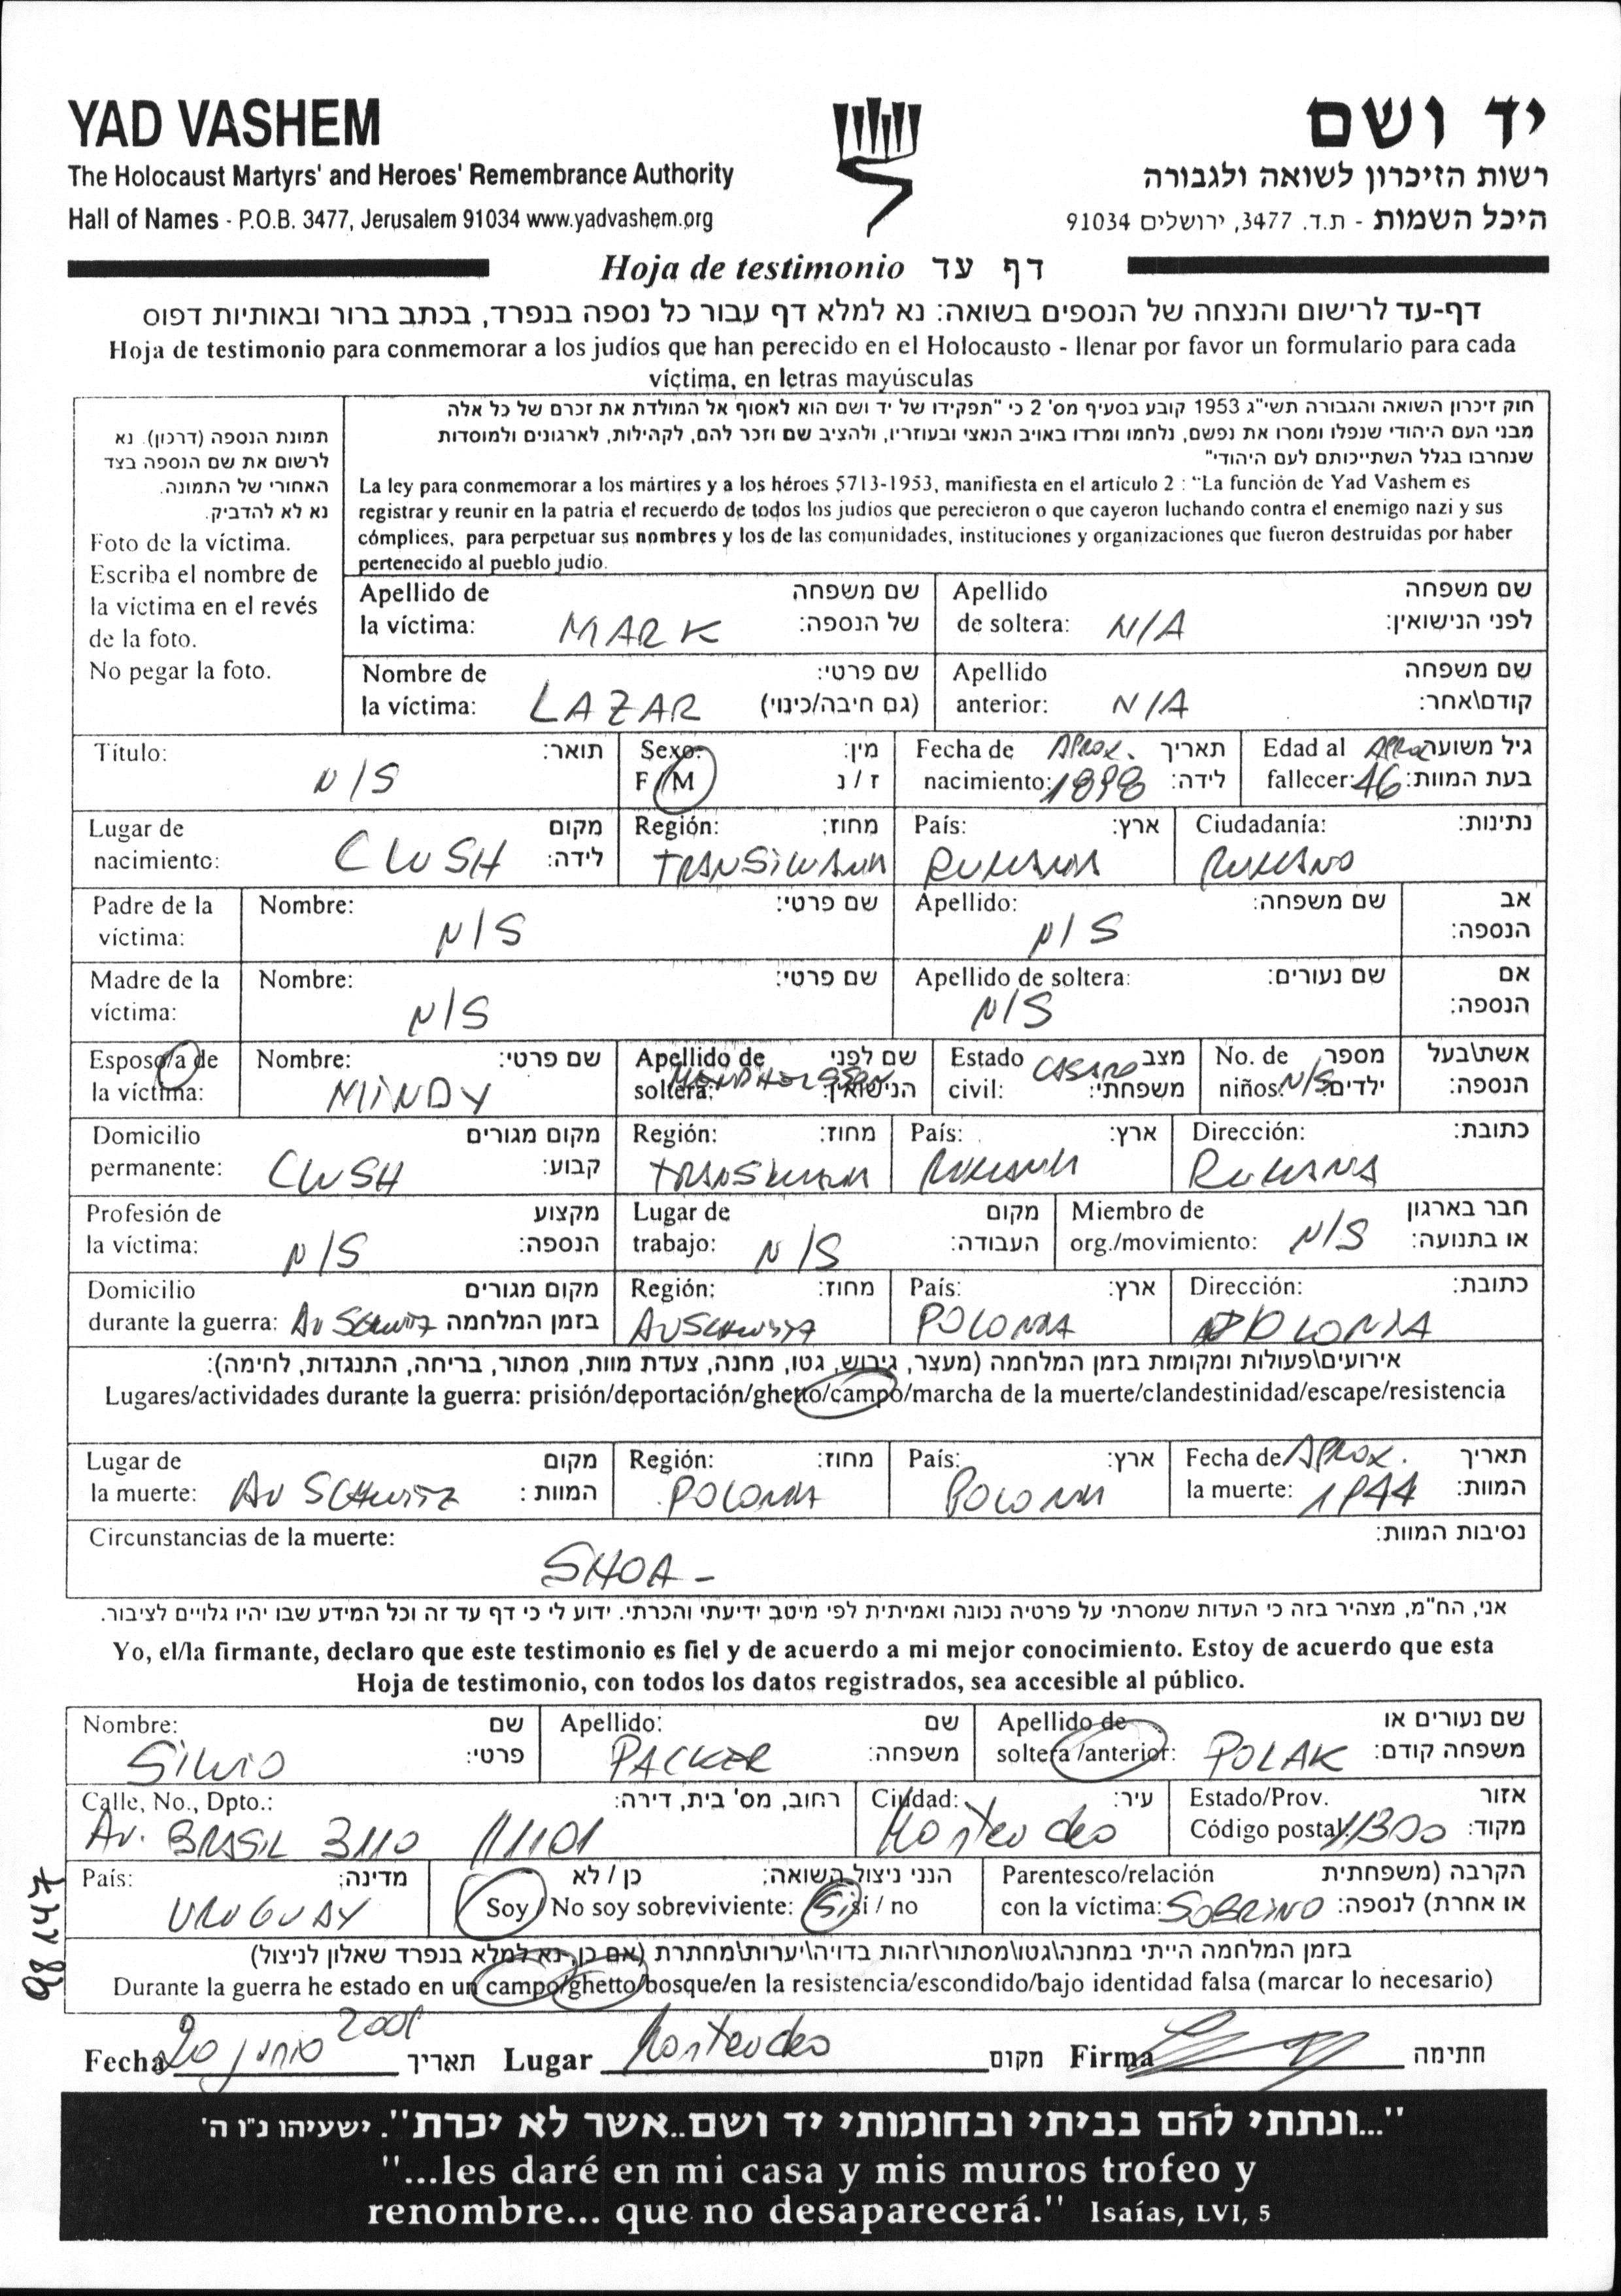 YAD VASHEM
יד ושם
The Holocaust Martyrs' and Heroes' Remembrance Authority
רשות הזיכרון לשואה ולגבורה
Hall of Names - P.O.B. 3477, Jerusalem 91034 www.yadvashem.org
היכל השמות - ת.ד. 3477, ירושלים 91034
Hoja de testimonio דף עד
דף-עד לרישום והנצחה של הנספים בשואה: נא למלא דף עבור כל נספה בנפרד, בכתב ברור ובאותיות דפוס
Hoja de testimonio para conmemorar a los judíos que han perecido en el Holocausto - llenar por favor un formulario para cada
víctima, en letras mayúsculas
תמונת הנספה (דרכון). נא
לרשום את שם הנספה בצד
האחורי של התמונה.
נא לא להדביק.
Foto de la víctima.
Escriba el nombre de
la victima en el revés
de la foto.
No pegar la foto.
חוק זיכרון השואה והגבורה תשי"ג 1953 קובע בסעיף מס' 2 כי "תפקידו של יד ושם הוא לאסוף אל המולדת את זכרם של כל אלה
מבני העם היהודי שנפלו ומסרו את נפשם, נלחמו ומרדו באויב הנאצי ובעוזריו, ולהציב שם וזכר להם, לקהילות, לארגונים ולמוסדות
שנחרבו בגלל השתייכותם לעם היהודי"
La ley para conmemorar a los mártires y a los héroes 5713-1953, manifiesta en el artículo 2 : "La función de Yad Vashem es
registrar y reunir en la patria el recuerdo de todos los judios que perecieron o que cayeron luchando contra el enemigo nazi y sus
cómplices, para perpetuar sus nombres y los de las comunidades, instituciones y organizaciones que fueron destruidas por haber
pertenecido al pueblo judio.
Apellido de שם משפחה Apellido שם משפחה
la víctima: MARK של הנספה: de soltera: N/A לפני הנישואין:
Nombre de שם פרטי: Apellido שם משפחה
la víctima: LAZAR (גם חיבה/כינוי) anterior: N/A קודם\אחר:
Título: תואר: Sexo: מין: Fecha de APROX. תאריך Edad al APROX גיל משוער
N/S F / M ז / נ nacimiento: 1898 לידה: fallecer: 46 בעת המוות:
Lugar de מקום Región: מחוז: País: ארץ: Ciudadanía: נתינות:
nacimiento: CLUSH לידה: TRANSILVANIA RUMANIA RUMANO
Padre de la Nombre: שם פרטי: Apellido: שם משפחה: אב
víctima: N/S N/S הנספה:
Madre de la Nombre: שם פרטי: Apellido de soltera: שם נעורים: אם
víctima: N/S N/S הנספה:
Esposo/a de Nombre: שם פרטי: Apellido de שם לפני Estado CASADO מצב No. de מספר אשת\בעל
la víctima: MINDY soltera: הנישואין: civil: משפחתי: niños: N/S ילדים: הנספה:
Domicilio מקום מגורים Región: מחוז: País: ארץ: Dirección: כתובת:
permanente: CLUSH קבוע: TRANSILVANIA RUMANIA RUMANIA
Profesión de מקצוע Lugar de מקום Miembro de חבר בארגון
la víctima: N/S הנספה: trabajo: N/S העבודה: org./movimiento: N/S או בתנועה:
Domicilio מקום מגורים Región: מחוז: País: ארץ: Dirección: כתובת:
durante la guerra: AUSCHWITZ בזמן המלחמה AUSCHWITZ POLONIA POLONIA
אירועים\פעולות ומקומות בזמן המלחמה (מעצר, גירוש, גטו, מחנה, צעדת מוות, מסתור, בריחה, התנגדות, לחימה):
Lugares/actividades durante la guerra: prisión/deportación/ghetto/campo/marcha de la muerte/clandestinidad/escape/resistencia
Lugar de מקום Región: מחוז: País: ארץ: Fecha de APROX. תאריך
la muerte: AUSCHWITZ המוות: POLONIA POLONIA la muerte: 1944 המוות:
Circunstancias de la muerte: נסיבות המוות:
SHOA -
אני, הח"מ, מצהיר בזה כי העדות שמסרתי על פרטיה נכונה ואמיתית לפי מיטב ידיעתי והכרתי. ידוע לי כי דף עד זה וכל המידע שבו יהיו גלויים לציבור.
Yo, el/la firmante, declaro que este testimonio es fiel y de acuerdo a mi mejor conocimiento. Estoy de acuerdo que esta
Hoja de testimonio, con todos los datos registrados, sea accesible al público.
Nombre: שם Apellido: שם Apellido de שם נעורים או
SILVIO פרטי: PACKER משפחה: soltera /anterior: POLAK משפחה קודם:
Calle, No., Dpto.: רחוב, מס' בית, דירה: Ciudad: עיר: Estado/Prov. אזור
Av. BRASIL 3110 /1101 Montevideo Código postal: 11300 מקוד:
País: מדינה: כן / לא הנני ניצול השואה: Parentesco/relación הקרבה (משפחתית
URUGUAY Soy / No soy sobreviviente: Si si / no con la víctima: SOBRINO או אחרת) לנספה:
בזמן המלחמה הייתי במחנה\גטו\מסתור\זהות בדויה\יערות\מחתרת (אם כן, נא למלא בנפרד שאלון לניצול)
Durante la guerra he estado en un campo/ghetto/bosque/en la resistencia/escondido/bajo identidad falsa (marcar lo necesario)
98147
Fecha 20 junio 2001 תאריך Lugar Montevideo מקום Firma חתימה
"...ונתתי להם בביתי ובחומותי יד ושם..אשר לא יכרת". ישעיהו נ"ו ה'
"...les daré en mi casa y mis muros trofeo y
renombre... que no desaparecerá." Isaías, LVI, 5